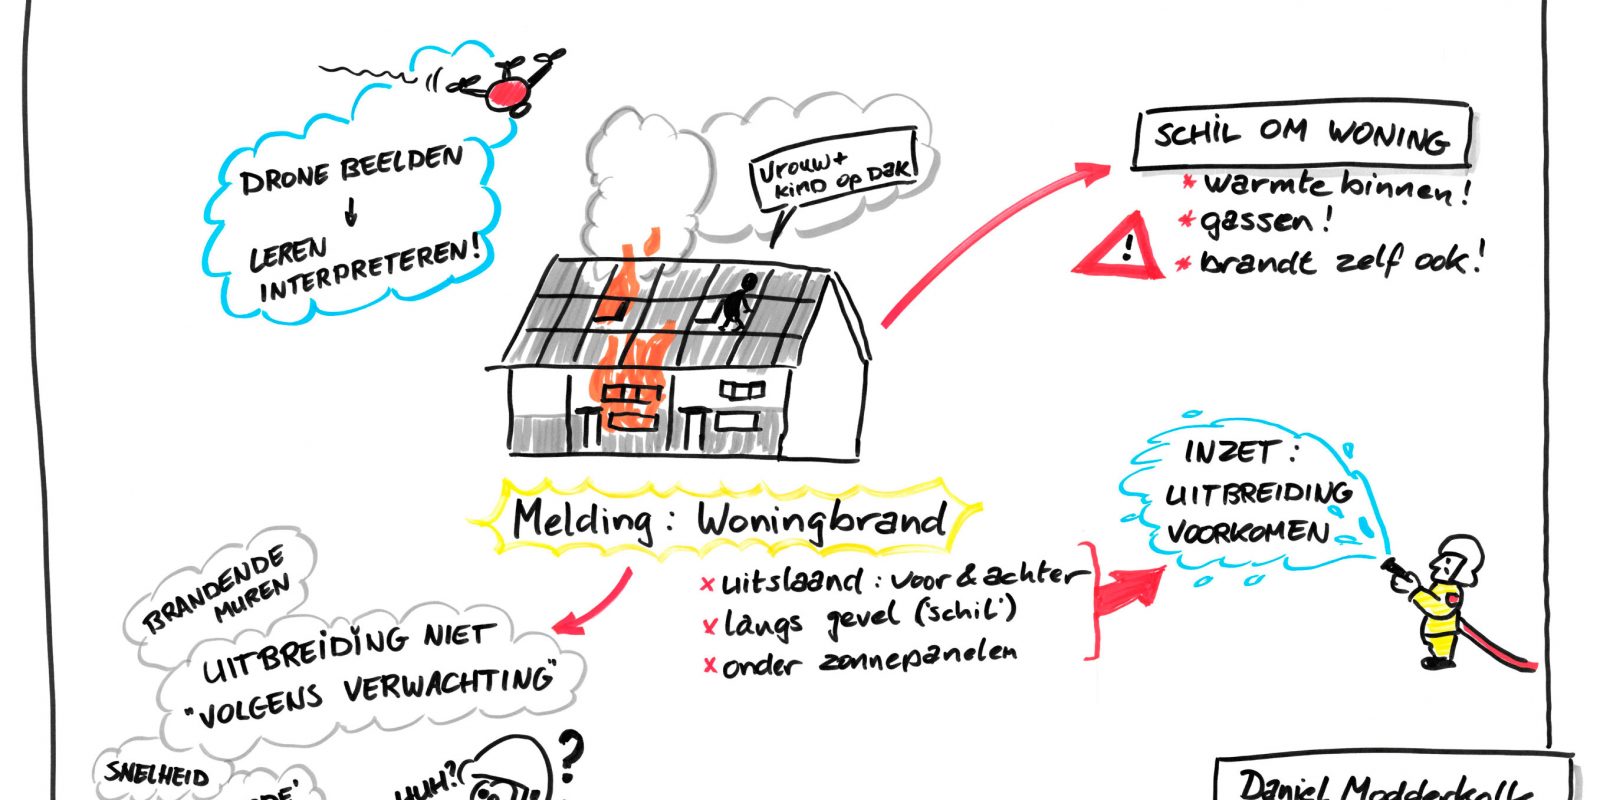 DRONE BEELDEN
↓
LEREN
INTERPRETEREN!
Vrouw +
kind op dak!
SCHIL OM WONING
* warmte binnen!
* gassen!
* brandt zelf ook!
!
Melding: Woningbrand
x uitslaand: voor & achter
x langs gevel ('schil')
x onder zonnepanelen
INZET:
UITBREIDING
VOORKOMEN
BRANDENDE
MUREN
UITBREIDING NIET
"VOLGENS VERWACHTING"
SNELHEID
HUH?
?
Daniel Modderkolk